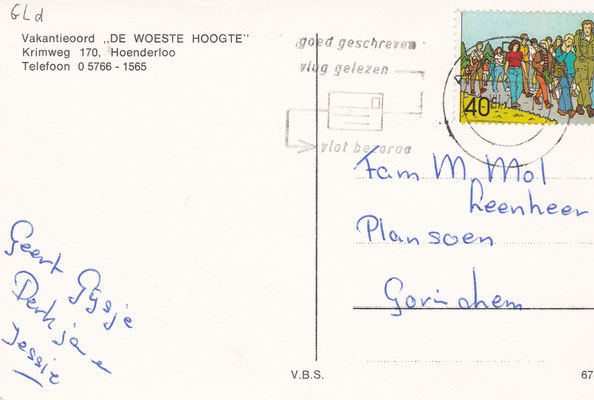 GLd
Vakantieoord „DE WOESTE HOOGTE"
Krimweg 170, Hoenderloo
Telefoon 0 5766 - 1565
goed geschreven
vlug gelezen
vlot bezorgd
40 c
Fam M. Mol
Leenheer
Plansoen
Gorinchem
Geert Gijsje
Derkje
Jessie
V.B.S.
678